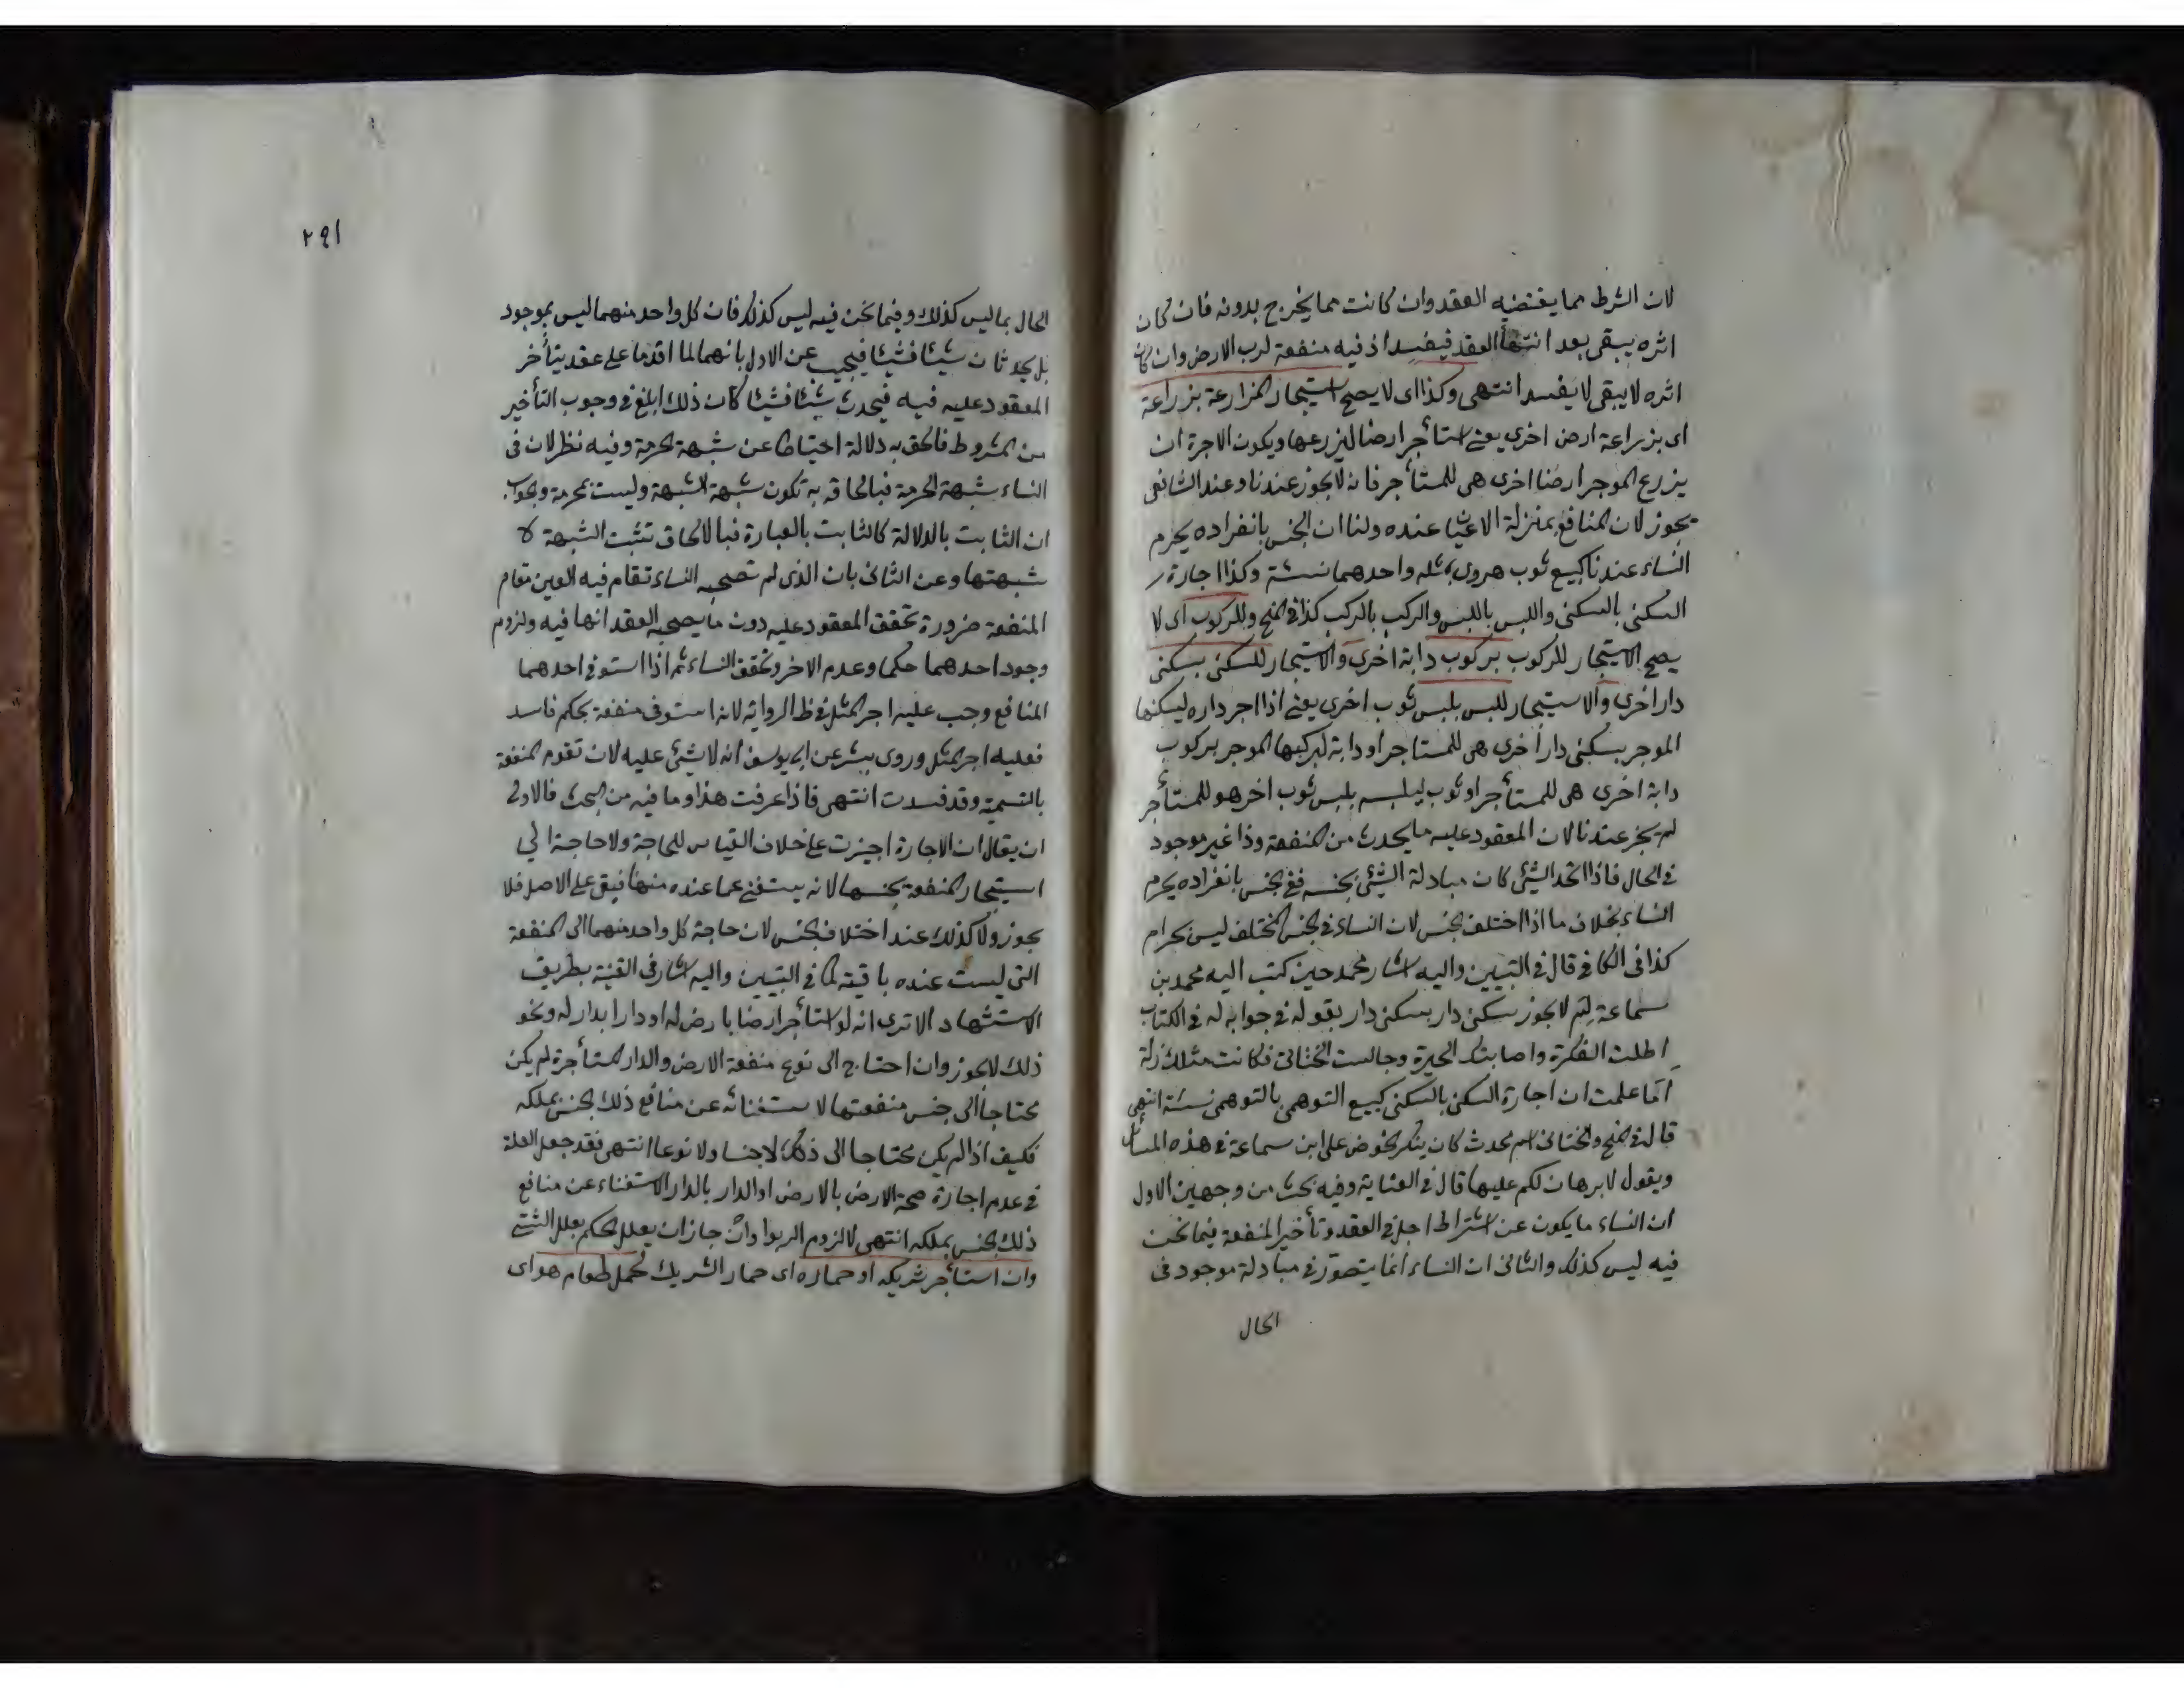 لان الشرط مما يقتضيه العقد وان كانت مما يخرج بدونه فان كان
اثره يبقى بعد انتهأ العقد فيفسد اذ فيه منفعة لرب الارض وان كان
اثره لا يبقى لا يفسد انتهى وكذا اى لا يصح استيجار المزارعة بزراعة
اى بزراعة ارض اخرى يعنى استأجر ارضا ليزرعها ويكون الاجرة ان
يزرع الموجر ارضا اخرى هى للمستأجر فانه لا يجوز عندنا وعند الشافعى
يجوز لان المنافع بمنزلة الاعيان عنده ولنا ان الجنس بانفراده يحرم
النساء عندنا كبيع ثوب هروى بمثله واحدهما نسئة وكذا اجارة
السكنى بالسكنى واللبس باللبس والركب بالركب كذا فى المنح وللركوب اى لا
يصح الاستيجار للركوب بركوب دابة اخرى والاستيجار للسكنى بسكنى
دار اخرى والاستيجار للبس بلبس ثوب اخرى يعنى اذا اجر داره ليسكنها
الموجر بسكنى دار أخرى هى للمستاجر او دابة ليركبها الموجر بركوب
دابة اخرى هى للمستأجر او ثوب ليلبسه بلبس ثوب اخر هو للمستأجر
لم يجز عندنا لان المعقود عليه ما يحدث من المنفعة وذا غير موجود
فى الحال فاذا اتحد الشئ كان مبادلة الشئ بجنسه ففى الجنس بانفراده يحرم
النساء بخلاف ما اذا اختلف الجنس لان النساء فى الجنس المختلف ليس بحرام
كذا فى الكافى قال فى التبيين واليه اشار محمد حين كتب اليه محمد بن
سماعة لم لا يجوز سكنى دار بسكنى دار بقوله فى جوابه له فى الكتاب
اطلت الفكرة واصابتك الحيرة وجالست الحنائى فكانت مثلك زلة
أما علمت ان اجارة السكنى بالسكنى كبيع التوهمى بالتوهمى نسئة انتهى
قال فى المنح والحنائى اسم محدث كان ينكر الخوض على ابن سماعة فى هذه المسائل
ويقول لا برهان لكم عليها قال فى العناية وفيه بحث من وجهين الاول
ان النساء ما يكون عن اشتراط اجل فى العقد وتأخير المنفعة فيما نحن
فيه ليس كذلك والثانى ان النساء انما يتصور فى مبادلة موجود فى
الحال
٢٩١
الحال بما ليس كذلك وفيما نحن فيه ليس كذلك فان كل واحد منهما ليس بموجود
بل يحدثان شيئا فشيئا فيجيب عن الاول بانهما لما اقدما على عقد يتأخر
المعقود عليه فيه فيحدث شيئا فشيئا كان ذلك ابلغ فى وجوب التأخير
من المشروط فالحق به دلالة احتياطا عن شبهة الحرمة وفيه نظر لان فى
النساء شبهة الحرمة فبالحاقه به تكون شبهة الشبهة وليست بمحرمة وبجواب
ان الثابت بالدلالة كالثابت بالعبارة فبالالحاق تثبت الشبهة لا
شبهتها وعن الثانى بان الذى لم تصحبه النساء تقام فيه العين مقام
المنفعة ضرورة تحقق المعقود عليه دون ما يصحبه العقد انها فيه ولزوم
وجود احدهما حكما وعدم الاخر وتحقق النساء ثم اذا استوفى احدهما
المنافع وجب عليه اجر المثل فى ظ الرواية لانه استوفى منفعة بحكم فاسد
فعليه اجر المثل وروى بشر عن ابى يوسف انه لا شئ عليه لان تقوم المنفعة
بالتسمية وقد فسدت انتهى فاذا عرفت هذا وما فيه من البحث فالاولى
ان يقال ان الاجارة اجيزت على خلاف القياس للحاجة ولا حاجة الى
استيجار المنفعة بجنسها لانه يستغنى عما عنده منها فيبقى على الاصل فلا
يجوز ولا كذلك عند اختلاف الجنس لان حاجة كل واحد منهما الى المنفعة
التى ليست عنده باقية كما فى التبيين واليه اشار فى القنية بطريق
الاستشهاد الا ترى انه لو استأجر ارضا بارض له او دارا بدار له ونحو
ذلك لا يجوز وان احتاج الى نوع منفعة الارض والدار المستأجرة لم يكن
محتاجا الى جنس منفعتها لاستغنائه عن منافع ذلك الجنس بملكه
فكيف اذا لم يكن محتاجا الى ذلك لا جنسا ولا نوعا انتهى فقد جعل العلة
فى عدم اجارة صحة الارض بالارض او الدار بالدار الاستغناء عن منافع
ذلك الجنس بملكه انتهى لا لزوم الربوا وان جاز ان يعلل الحكم بعلل الشتى
وان استأجر شريكه او حماره اى حمار الشريك لحمل طعام هو اى